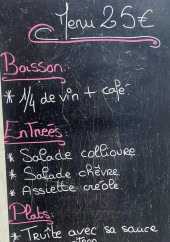 Menu 25€
Boisson:
* 1/4 de vin + café
Entrées:
* Salade collioure
* Salade chèvre
* Assiette créole
Plats:
* Truite avec sa sauce